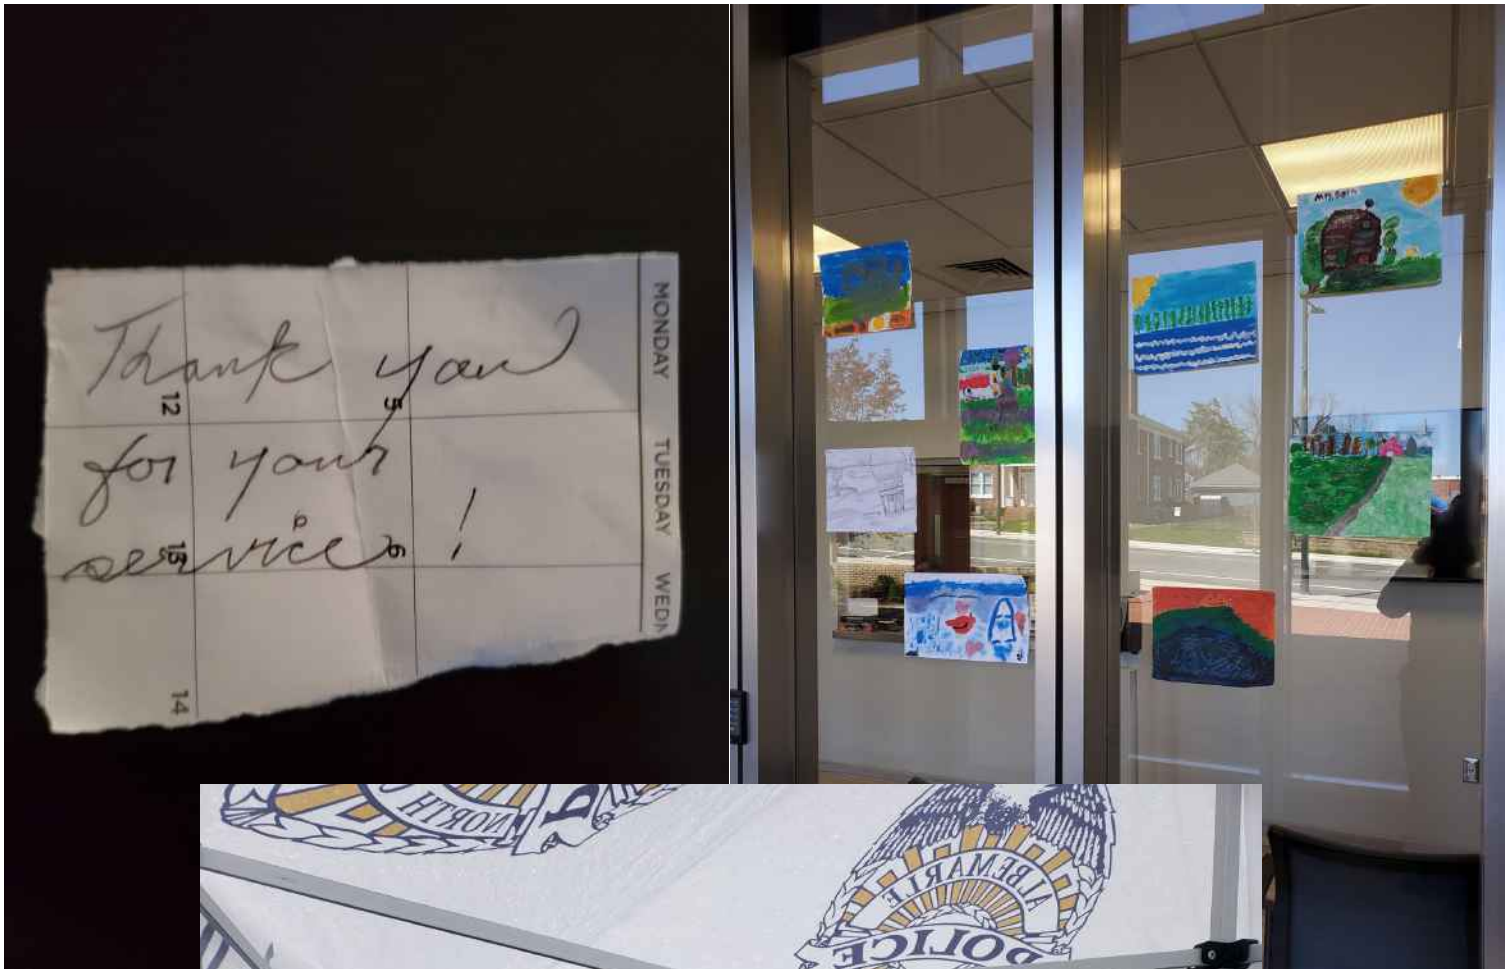 Thank you
for your
service!
MONDAY
TUESDAY
WEDN
12
5
13
6
14
NORTH
ALBEMARLE
POLICE